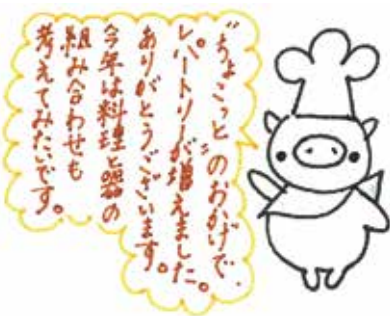 "ちょこっと"のおかげで、
レパートリーが増えました。
ありがとうございます。
今年は料理と器の
組み合わせも
考えてみたいです。